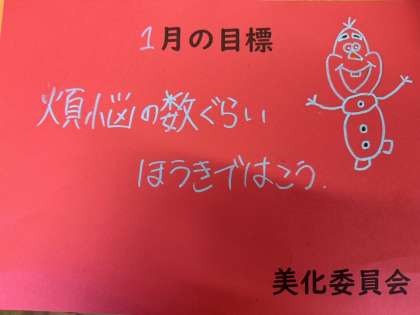 1月の目標
煩悩の数ぐらい
ほうきではこう.
美化委員会